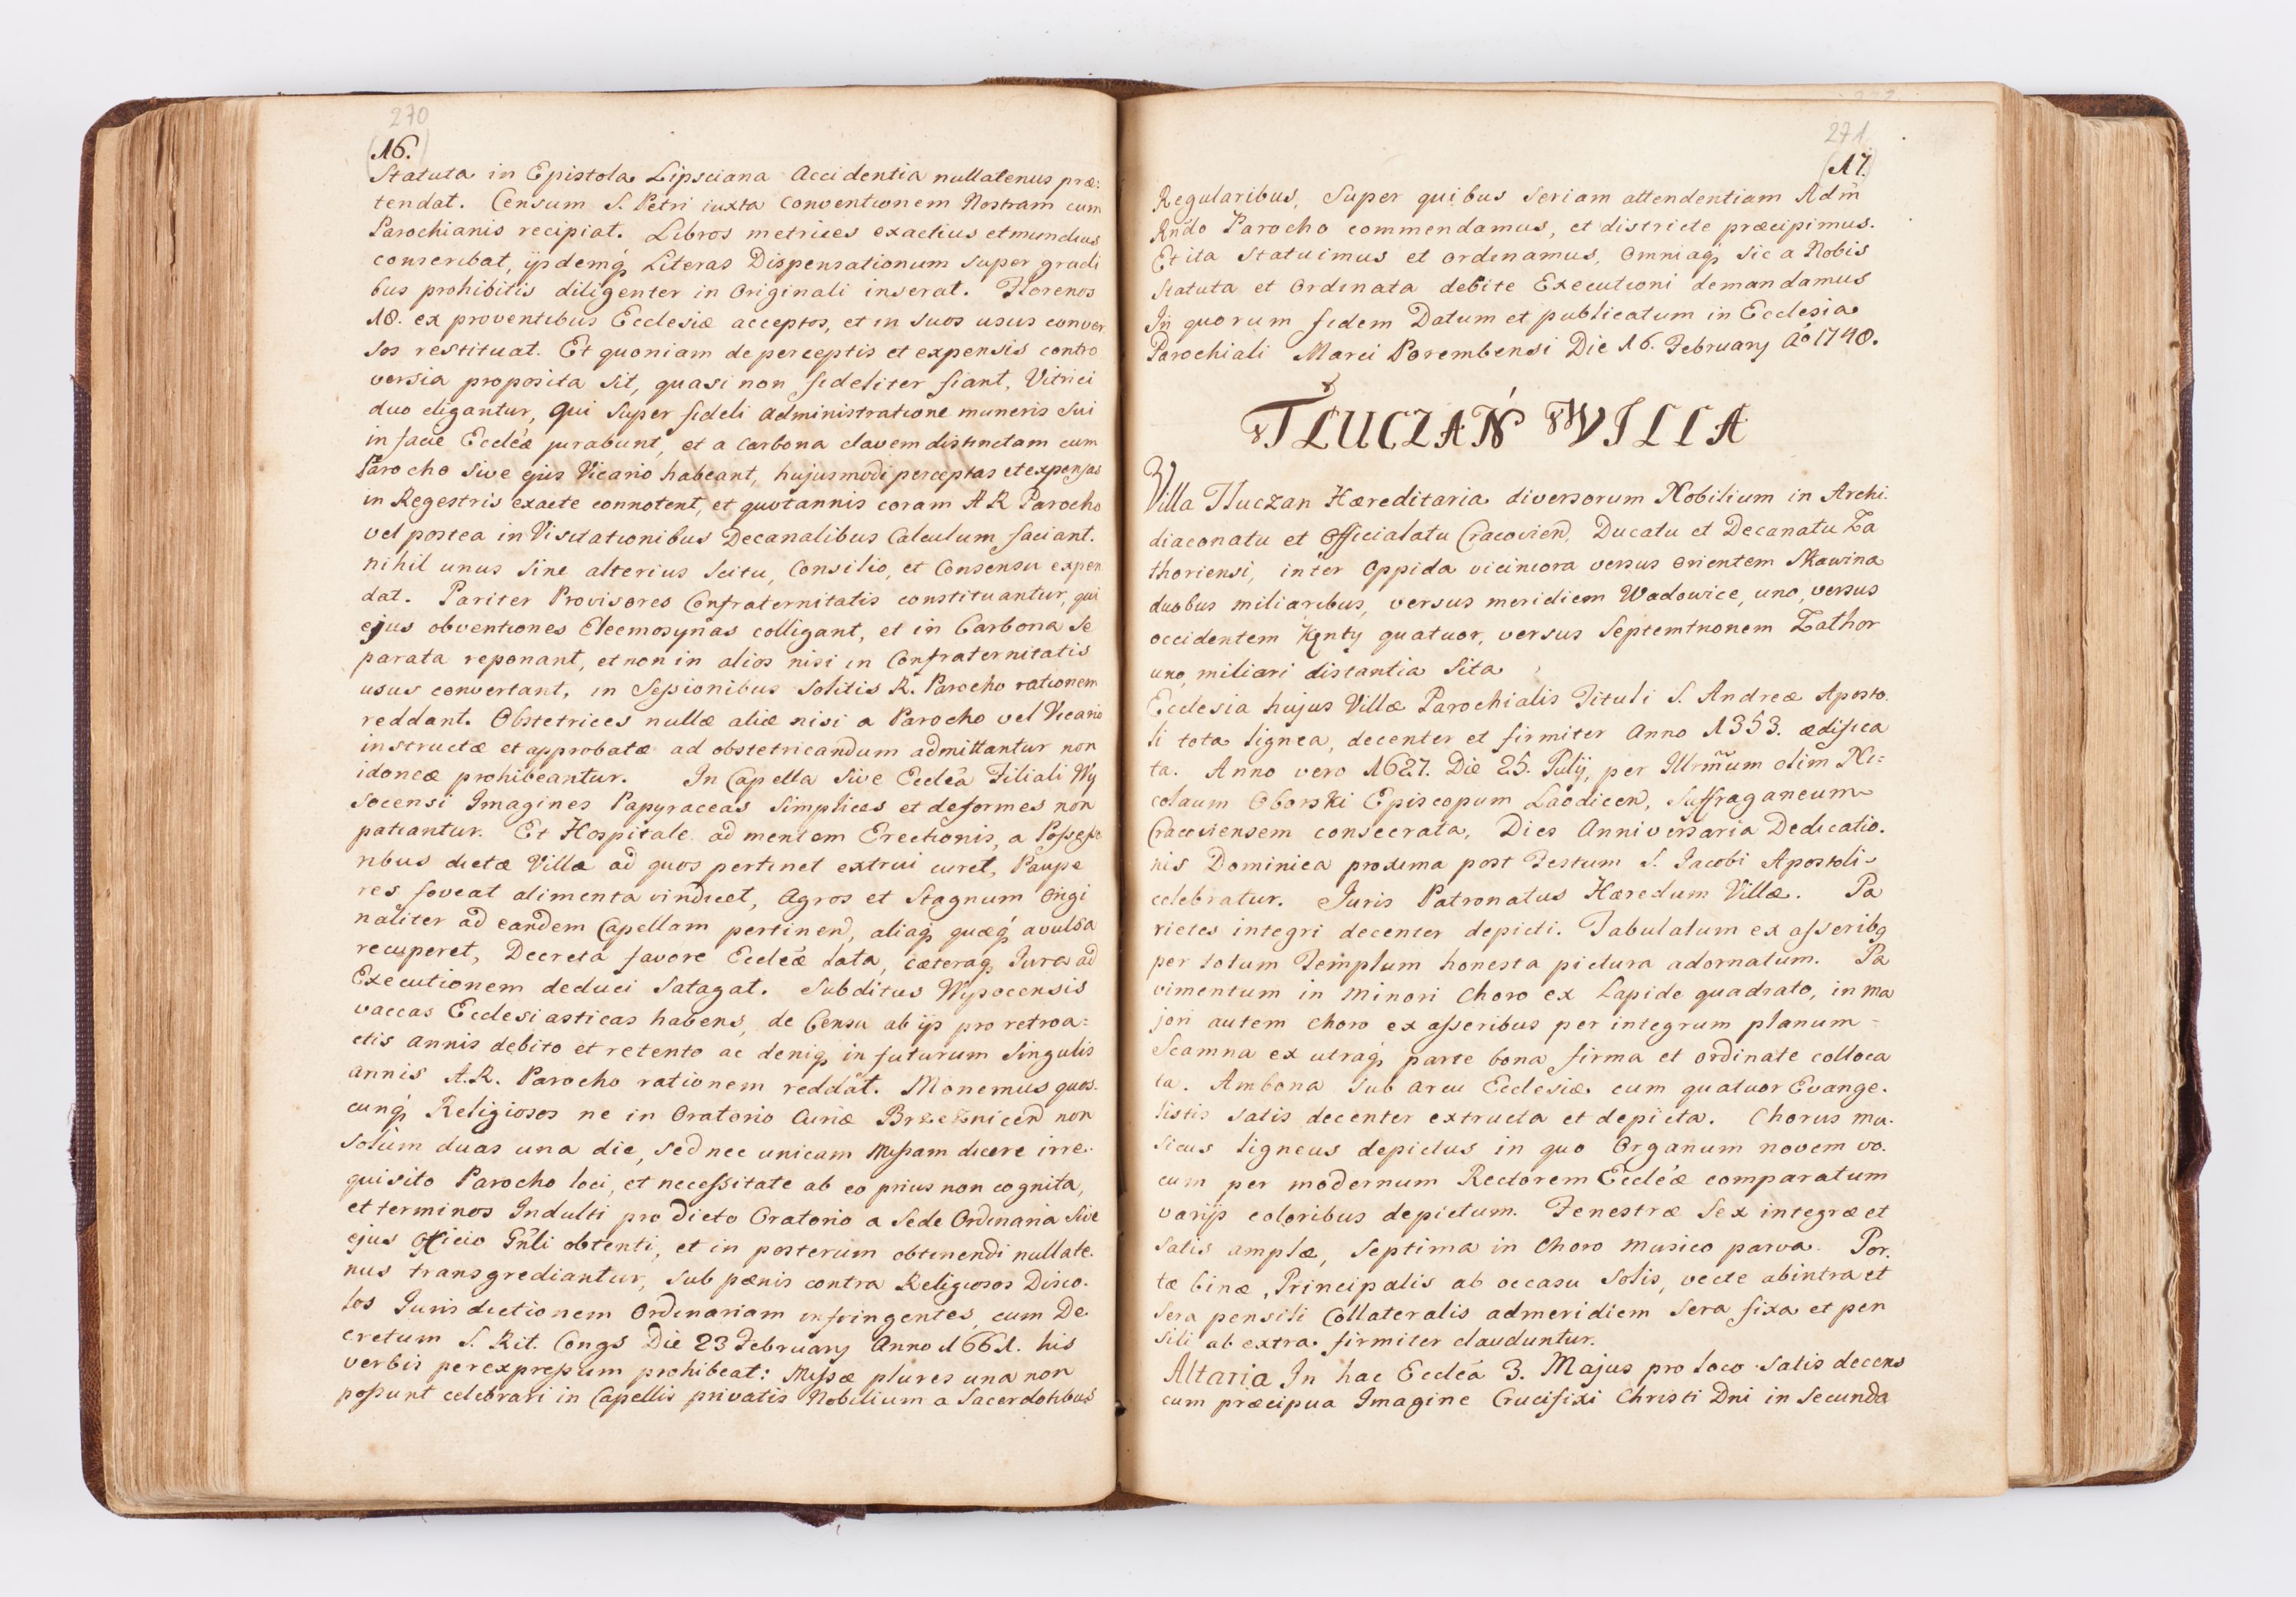 270
(16.)
Statuta in Epistola Lipsciana Accidentia nullatenus præ:
tendat. Censum S. Petri iuxta Conventionem Nostram cum
Parochianis recipiat. Libros metrices exactius et mundius
conscribat, ijsdemq́ Literas Dispensationum super gradi
bus prohibitis diligenter in Originali inserat. Florenos
18. ex proventibus Ecclesiæ acceptos, et in suos usus conver
sos restituat. Et quoniam de perceptis et expensis contro
versia proposita sit, quasi non fideliter fiant, Vitrici
duo eligantur, qui super fideli administratione muneris sui
in facie Eccleæ jurabunt, et a Carbona clavem distinctam cum
Parocho sive ejus Vicario habeant, hujusmodi perceptas et expensas
in Regestris exacte connotent, et quotannis coram A R Parocho
vel postea in Visitationibus Decanalibus Calculum faciant.
nihil unus sine alterius scitu, Consilio, et Consensu expen
dat. Pariter Provisores Confraternitatis constituantur, qui
ejus obventiones Eleemosynas colligant, et in Carbona se
parata reponant, et non in alios nisi in Confraternitatis
usus convertant, in Sessionibus solitis R. Parocho rationem
reddant. Obstetrices nullæ aliæ nisi a Parocho vel Vicario
instructæ et approbatæ ad obstetricandum admittantur non
idoneæ prohibeantur. In Capella sive Ecclea Filiali Wy
socensi Imagines Papyraceas simplices et deformes non
patiantur. Et Hospitale ad mentem Erectionis, a Possesso
ribus dictæ Villæ ad quos pertinet extrui curet, Paupe
res foveat alimenta vindicet, Agros et Stagnum origi
naliter ad eandem Capellam pertinen, aliaq́ quæq́ avulsa
recuperet, Decreta favore Eccleæ lata, cæteraq́ Jura ad
Executionem deduci satagat. Subditus Wysocensis
vaccas Ecclesiasticas habens, de Censu ab ijs pro retroa:
ctis annis debito et retento ac deniq́ in futurum singulis
annis A.R. Parocho rationem reddat. Monemus quos
cunq́ Religiosos ne in Oratorio Curiæ Brzeznicen non
solum duas una die, sed nec unicam Missam dicere irre
quisito Parocho loci, et necessitate ab eo prius non cognita,
et terminos Indulti pro dicto Oratorio a Sede Ordinaria sive
ejus Officio Gnli obtenti, et in posterum obtinendi nullate
nus transgrediantur, sub pænis contra Religiosos Disco
los Jurisdictionem Ordinariam infringentes, cum De
cretum S. Rit. Congs Die 23 February Anno 1661. his
verbis perexpressum prohibeat: Missæ plures una non
possunt celebrari in Capellis privatis Nobilium a Sacerdotibus
271
(17.)
Regularibus, super quibus seriam attendentiam Adm
Rndo Parocho commendamus, et districte præcipimus.
Et ita statuimus et ordinamus, omniaq́ sic a Nobis
statuta et ordinata debite Executioni demandamus
In quorum fidem Datum et publicatum in Ecclesia
Parochiali Marci Porembensi Die 16. February Ao 1748.
TŁUCZAŃ WILLA
Villa Tłuczan Hæreditaria diversorum Nobilium in Archi
diaconatu et Officialatu Cracovien, Ducatu et Decanatu Za
thoriensi, inter Oppida viciniora versus orientem Skawina
duobus miliaribus, versus meridiem Wadowice, uno, versus
occidentem Kęnty quatuor, versus Septemtrionem Zathor
uno miliari distantia sita
Ecclesia hujus Villæ Parochialis Tituli S. Andreæ Aposto
li tota lignea, decenter et firmiter Anno 1353. ædifica
ta. Anno vero 1627. Die 25. Julij, per Illrmum olim Ni=
colaum Oborski Episcopum Laodicen, Suffraganeum
Cracoviensem consecrata, Dies Anniversaria Dedicatio.
nis Dominica proxima post Festum S. Jacobi Apostoli
celebratur. Juris Patronatus Hæredum Villæ. Pa
rietes integri decenter depicti. Tabulatum ex asseribq
per totum Templum honesta pictura adornatum. Pa
vimentum in minori Choro ex Lapide quadrato, in ma
jori autem choro ex asseribus per integrum planum
Scamna ex utraq́ parte bona firma et ordinate colloca
ta. Ambona sub arcu Ecclesiæ cum quatuor Evange.
listis satis decenter extructa et depicta. Chorus mu.
sicus ligneus depictus in quo Organum novem vo.
cum per modernum Rectorem Eccleæ comparatum
varijs coloribus depictum. Fenestræ sex integræ et
satis amplæ, septima in Choro musico parva. Por.
tæ binæ, Principalis ab occasu solis, vecte abintra et
sera pensili Collateralis ad meridiem sera fixa et pen
sili ab extra firmiter clauduntur.
Altaria In hac Ecclea 3. Majus pro loco satis decens
cum præcipua Imagine Crucifixi Christi Dni in secunda